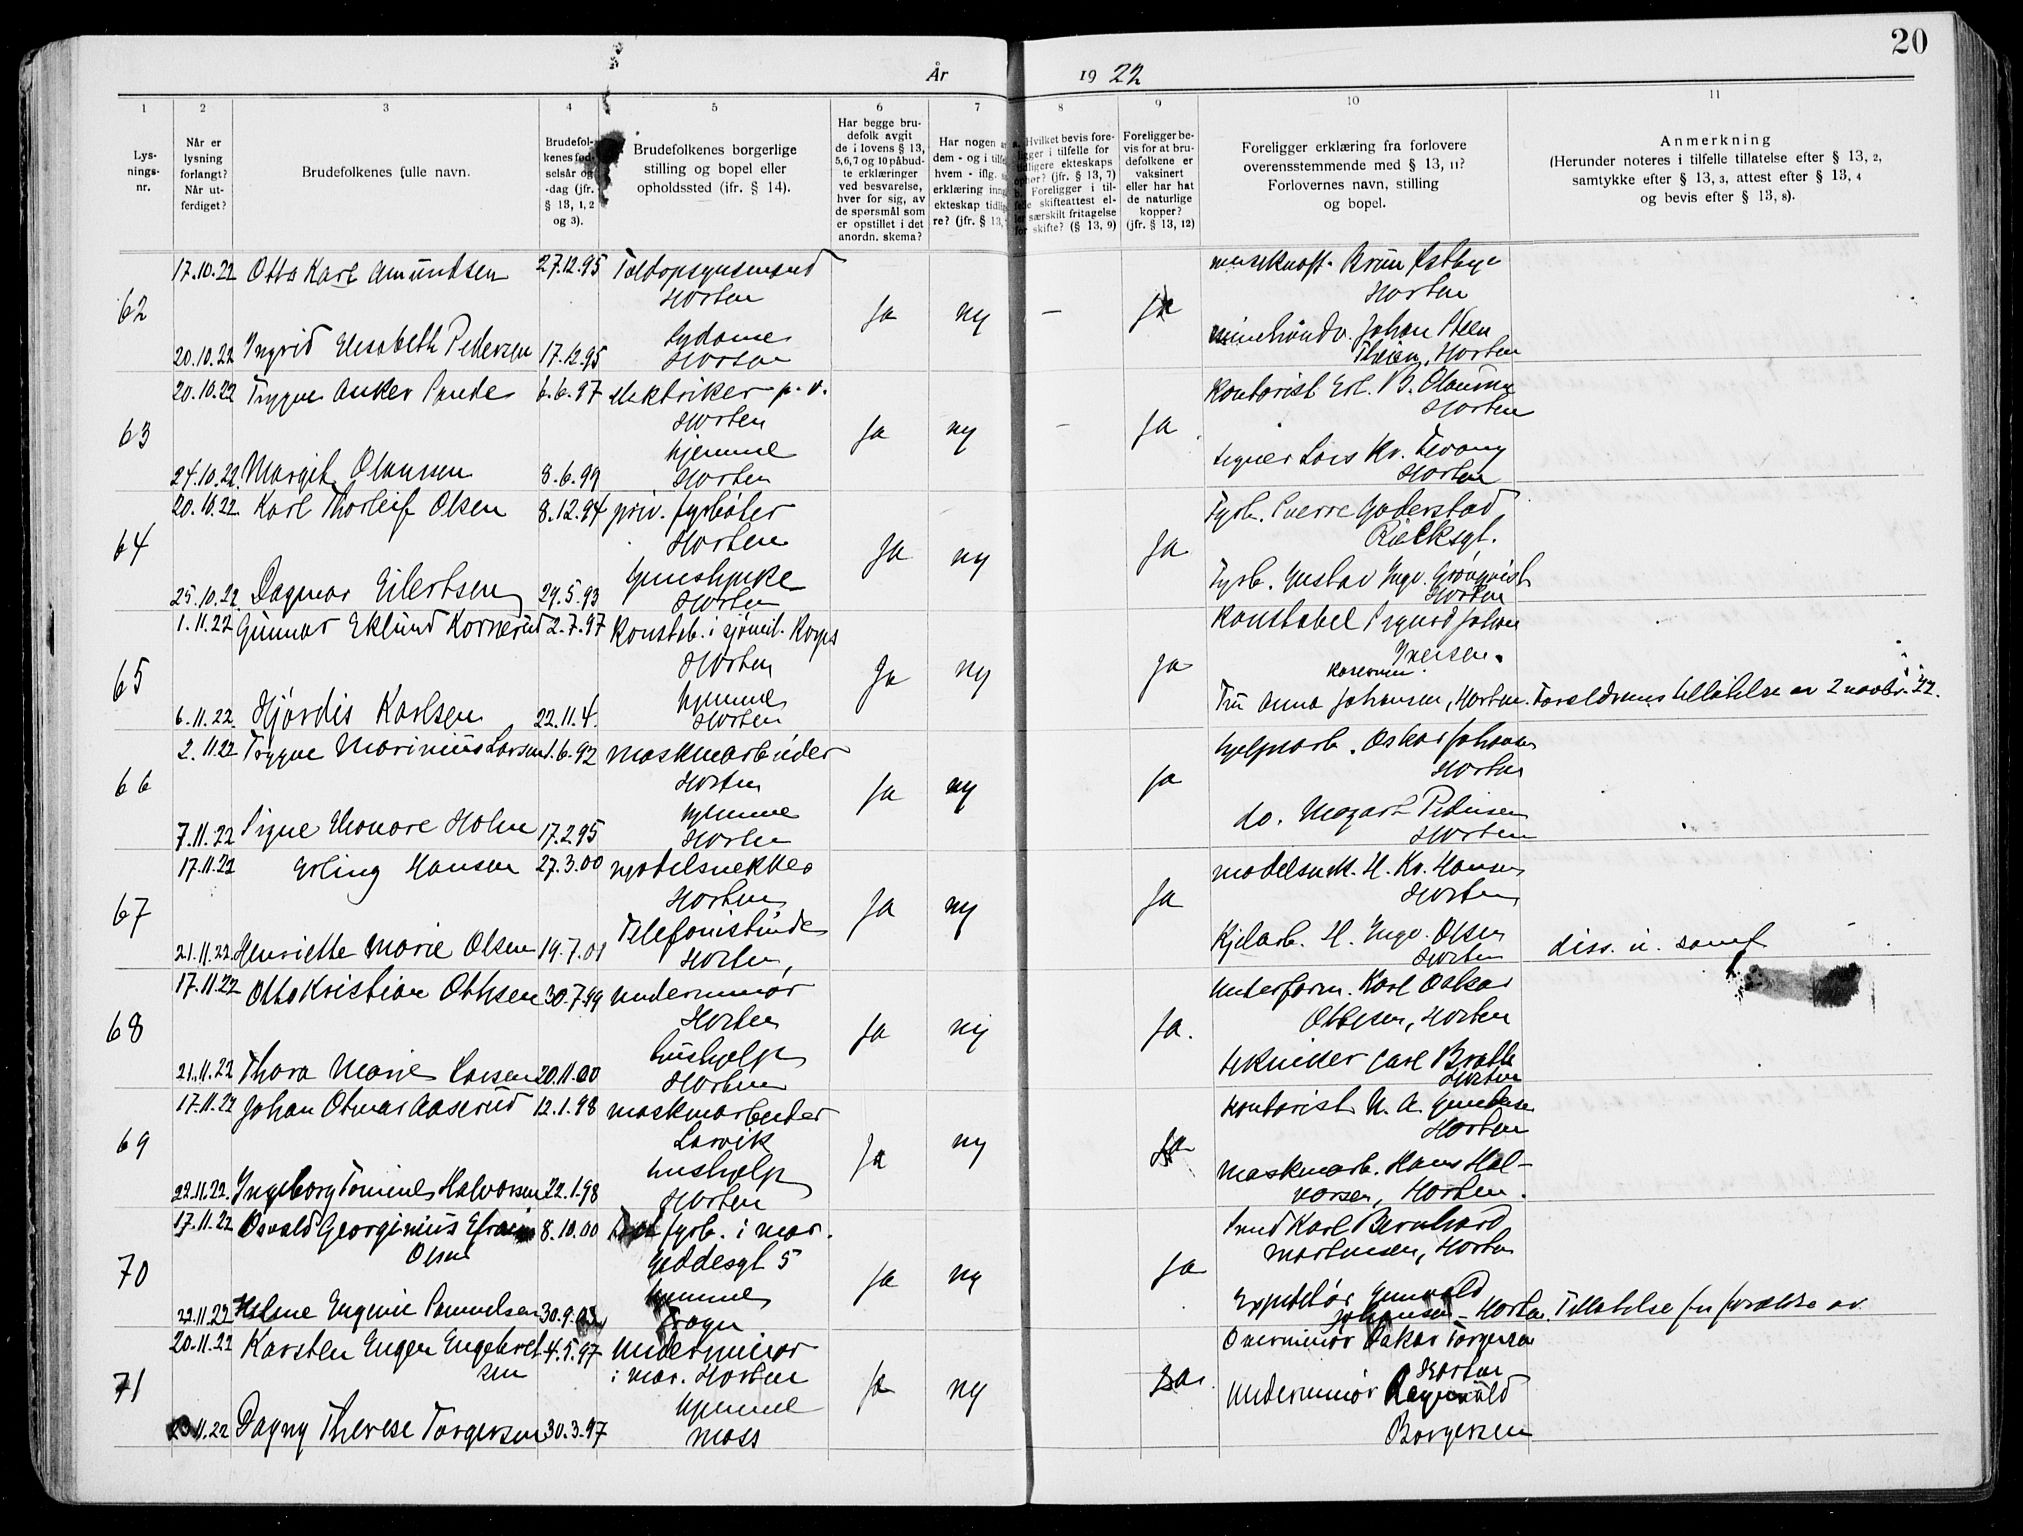 20
År 1922
1
2
3
4
5
6
7
8
9
10
11
Lys-
nings-
nr.
Når er
lysning
forlangt?
Når ut-
ferdiget?
Brudefolkenes fulle navn.
Brudefol-
kenes fød-
selsår og
-dag (jfr.
§ 13, 1, 2
og 3).
Brudefolkenes borgerlige
stilling og bopel eller
opholdssted (ifr. § 14).
Har begge bru-
defolk avgit
de i lovens § 13,
5,6,7 og 10 påbud-
te erklæringer
ved besvarelse,
hver for sig, av
de spørsmål som
er opstillet i det
anordn. skema?
Har nogen
dem - og i tilfe
hvem - iflg.
erklæring inng
ekteskap tidlig
re? (jfr. § 13,
Hvilket bevis fore-
ligger i tilfelle for
tidligere ekteskaps
ophør? (jfr. § 13, 7)
b. Foreligger i til-
felle skifteattest el-
ler særskilt fritagelse
for skifte? (§ 13, 9)
Foreligger be-
vis for at bru-
defolkene er
vaksinert
eller har hat
de naturlige
kopper?
(jfr. § 13, 12)
Foreligger erklæring fra forlovere
overensstemmende med § 13, 11?
Forlovernes navn, stilling
og bopel.
Anmerkning
(Herunder noteres i tilfelle tillatelse efter § 13, 2,
samtykke efter § 13, 3, attest efter § 13, 4
og bevis efter § 13, 8).
62
17.10.22 Otto Karl Amundsen 27.12.95 Toldopsynsmand
Horten
Ja ny — Ja
Horten
20.10.22 Ingrid Elisabeth Pedersen 17.12.95 Sydame
Horten
Johan Steen
Horten
63
20.10.22 Trygve Anker Sande 6.6.97 elektriker p. v.
Horten
Ja ny — Ja
kontorist Erl. B. Olausen
Horten
24.10.22 Margit Olausen 8.6.99 hjemme
Horten
Lars Kr.
Horten
64
20.10.22 Karl Thorleif Olsen 8.12.94 priv. fyrbøter
Horten
Ja ny Ja
Fyrb. Sverre Gaderstad
25.10.22 Dagmar Eilertsen 29.5.93
Horten
Fyrb. Gustav Ingv. Grönqvist
Horten
65
1.11.22 Gunnar Eklund Kornerud 2.7.97 Konstab. i sjømil. Korps
Horten
Ja ny Ja
Konstabel Sigurd Johan
Iversen.
6.11.22 Hjördis Karlsen 22.11.4. hjemme
Horten
Fru Anna Johansen, Horten. Foreldrenes tillatelse av 2 novbr. 22.
66
2.11.22 Trygve Marinius Larsen 1.6.92 maskinarbeider
Horten
Ja ny Ja
hjelpearb. Oskar Johansen
Horten
7.11.22 Signe Elionore Holm 17.2.95 hjemme
Horten
do. Mozart Petersen
Horten
67
17.11.22 Erling Hansen 27.3.00 modelsnekker
Horten
Ja ny Ja
modelsnek. H. Kr. Hansen
Horten
21.11.22 Henriette Marie Olsen 19.7.01 Telefonistinde
Horten,
Kjelarb. H. Ingv. Olsen
Horten
diss. u. samf
68
17.11.22 Otto Kristian Ottesen 30.7.99 underminør
Horten
Ja ny Ja.
Underform. Karl Oskar
Ottesen, Horten
21.11.22 Thora Marie Larsen 20.11.00 hushjelp
Horten
tekniker Carl Bratli
Horten
69
17.11.22 Johan Otmar Aaserud 12.1.98 maskinarbeider
Larvik
Ja ny Ja
kontorist N. A. Gundersen
Horten
22.11.22. Ingeborg Tomine Halvorsen 22.1.98 hushjelp
Horten
Maskinarb. Hans Hal-
vorsen, Horten.
70
17.11.22 Osvald Georginius Efraim 8.10.00 fyrb. i mar.
Olsen
Geddesgt 5
Ja ny Ja
Smed Karl Bernhard
Mortensen, Horten
22.11.22 Helene Eugenie Samuelsen 30.9.03 hjemme
Frogn
Expeditør Gunvald
Johansen - Horten. Tillatelse fra forældre av
71
20.11.22 Karsten Eugen Engebret 4.5.97 Underminør
sen
i mar. Horten
Ja ny Ja.
Overminør Oskar Torgersen
Horten
23.11.22 Dagny Therese Torgersen 30.3.97 hjemme
Moss
Underminør Ragnvald
Borgersen